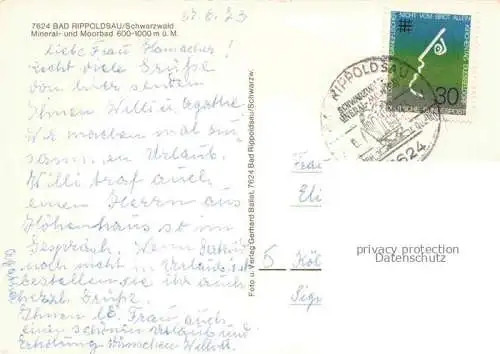 27.6.73
7624 BAD RIPPOLDSAU/Schwarzwald
Mineral- und Moorbad 600-1000 m ü. M.
Liebe Frau Hamacher!
Recht viele Grüße
von hier senden
Ihnen Willi u. Agathe
Wir machen mal
zusammen Urlaub.
Willi traf auch
einen Herrn aus
Höhenhaus so im
Gespräch. Wenn
noch nicht in Urlaub ist
bestellen sie ihr auch
herzl. Grüße.
Ihnen lb. Frau auch
einen schönen Urlaub und
Erholung wünschen Willi u.
Agathe
Foto u. Verlag Gerhard Ballet, 7624 Bad Rippoldsau/Schwarzw.
NICHT VOM BROT ALLEIN
DEUTSCHE BUNDESPOST
30
RIPPOLDSAU
SCHWARZWALD
MINERAL-MOORBAD
7624
Frau
Eli
5 Köl
Sigr
privacy protection
Datenschutz